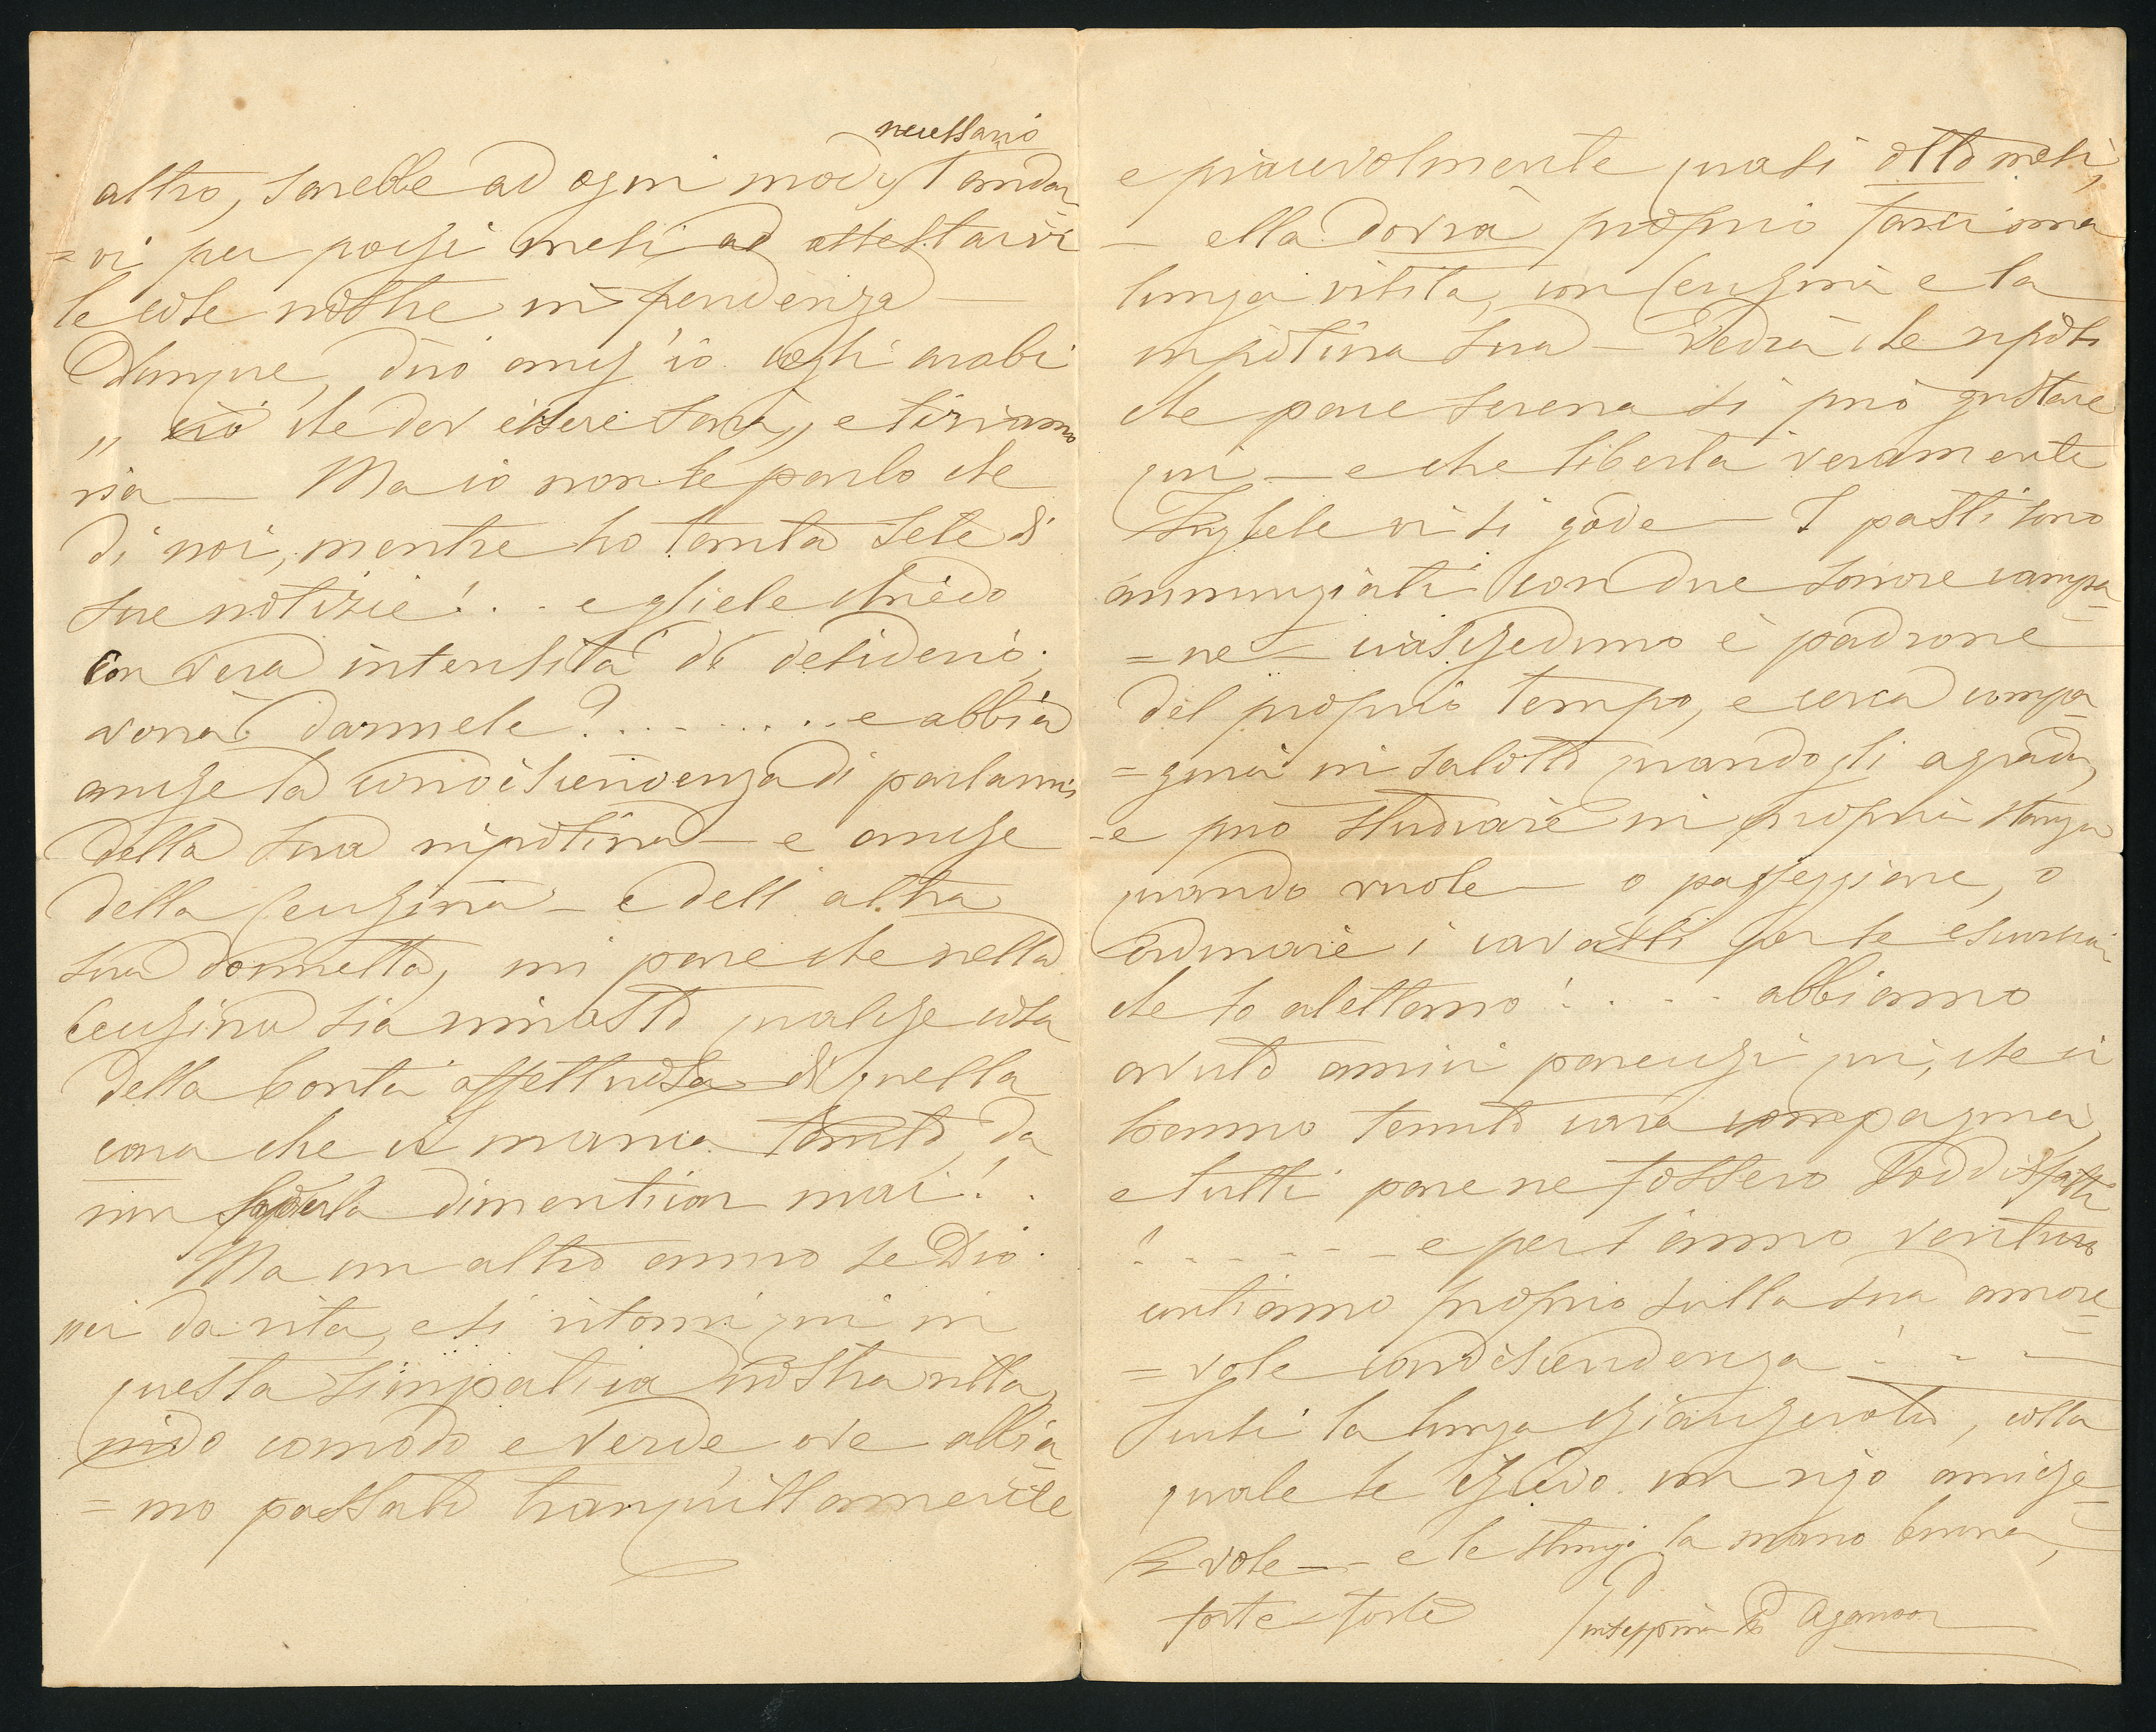 necessario
altro, sarebbe ad ogni modo l'andar
=vi per pochi mesi ad assestarvi
le cose nostre in pendenza —
Dunque, dirò anch'io cogli arabi
„ ciò che dev essere sarà„ e tiriamo
via — Ma io non le parlo che
di noi, mentre ho tanta sete di
sue notizie! . . e gliele chiedo
con vera intensità di desiderio;
vorrà darmele? . . . . . . . . e abbia
anche la condiscendenza di parlarmi
della sua nipotina — e anche
della Cenzina — e dell' altra
sua donnetta, mi pare che nella
Cenzina sia rimasto qualche cosa
della bontà affettuosa di quella
cara che ci manca tanto, da
non saperla dimenticar mai! .
Ma un altro anno se Dio
ci da vita, e si ritorni qui in
questa simpatica nostra villa,
nido comodo e verde, ove abbia=
=mo passato tranquillamente
e piacevolmente quasi otto mesi,
— ella dovrà proprio farci una
lunga visita, con Cenzina e la
nipotina sua — Vedrà che riposo
che pace serena si può gustare
qui — e che libertà veramente
Inglese vi si gode — I pasti sono
annunziati con due sonore campa=
=ne — ciascheduno è padrone
del proprio tempo, e cerca compa=
=gnia in salotto quando gli aggrada,
e può studiare in propria stanza
quando vuole — o passeggiare, o
ordinare i cavalli per le escursioni
che lo alettano! . . . . abbiamo
avuto amici parecchi qui, che ci
hanno tenuto cara compagnia,
e tutti pare ne fossero soddisfatti
! - - - - - - e per l'anno venturo
contiamo proprio sulla sua amore=
=vole condiscendenza! - - -
Scusi la lunga chiacchierata, colla
quale le chiedo un rigo amiche=
=vole — e le stringo la mano buona,
forte forte
Giuseppina Aganoor